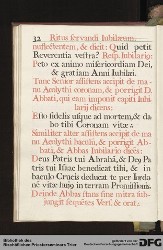 32 Ritus servandi Iubilæum,
nuflectentem, & dicit: Quid petit
Reverentia vestra? Resp. Iubilario:
Peto ex animo misericordiam Dei,
& gratiam Anni Iubilæi.
Tunc Senior assistens accipit de ma-
nu Acolythi coronam, & porrigit D.
Abbati, qui eam imponit capiti Iubi-
larij dicens:
Esto fidelis usque ad mortem, & da-
bo tibi Coronam vitæ:
Similiter alter assistens accipit de ma-
nu Acolythi baculū, & porrigit Ab-
bati, & Abbas Iubilario dicens:
Deus Patris tui Abrahā, & Deus Pa-
tris tui Isaac benedicat tibi, & in
baculo Crucis deducat te per Iorda-
nē vitæ huius in terram Promissionis.
Deinde Abbas sine mitra
jungit sequētes Vers. & orat:
Bibliothek des
Bischöflichen Priesterseminars Trier
DFG